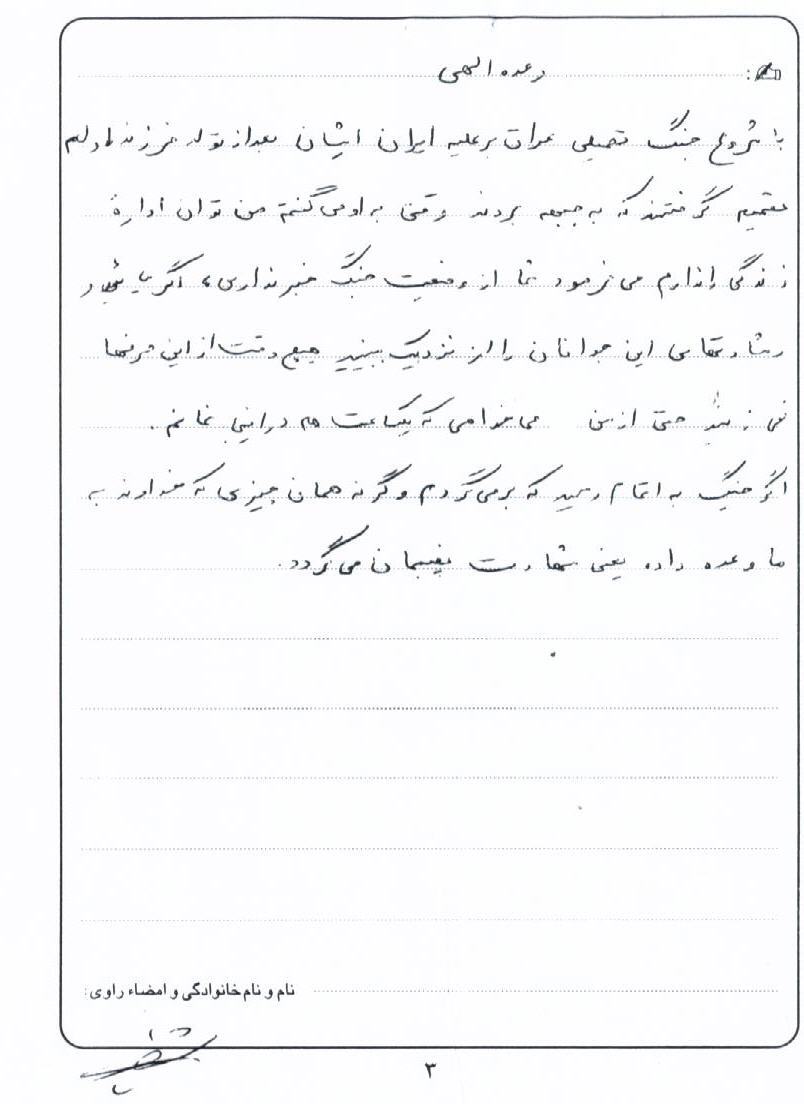 وعده الهی
با شروع جنگ تحمیلی عراق بر علیه ایران ایشان بعد از تولد فرزند اولم
تصمیم گرفتند که به جبهه بروند وقتی به او می گفتم من توان ادارهٔ
زندگی را ندارم می فرمود شما از وضعیت جنگ خبر نداری، اگر
این جوانان را از نزدیک ببینید هیچ وقت از این حرفها
نمی زنید حتی از من می خواهی که یکساعت هم در اینجا نمانم.
اگر جنگ به اتمام رسید که برمی گردم وگرنه همان چیزی که خداوند به
ما وعده داده یعنی شهادت نصیبمان می گردد.
نام و نام خانوادگی و امضاء راوی:
۳